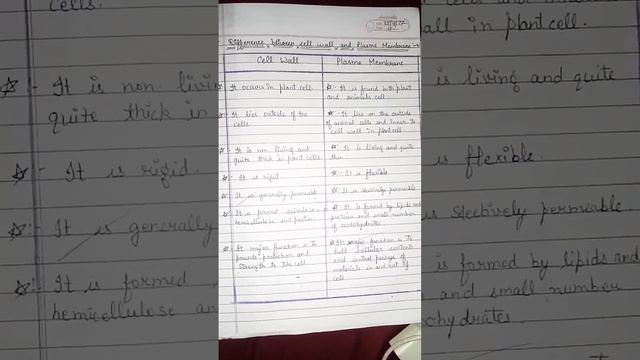 Difference between cell wall and Plasma Membrane →
Cell Wall
Plasma Membrane
It occurs in plant cell.
It is found both plant
and animals cell
It lies outside of the
cells.
It lies on the outside
of animal cells and inner to
cell wall in plant cell.
It is non living and
quite thick in plant cells
It is living and quite
thin
It is rigid.
It is flexible
It is generally permeable
It is selectively permeable
It is formed cellulose
hemicellulose and pectin
It is formed by lipids and
proteins and small number
of carbohydrates
It major function is to
provide protection and
strength to the cell
It major function is to
hold cellular contents
and control passage of
materials in and out of
cell
It is non livin
quite thick in
It is rigid.
It is generally
It is formed
hemicellulose an
all in plant cell.
is living and quite
is flexible.
is selectively permeable.
is formed by lipids and
and small number
ohydrates